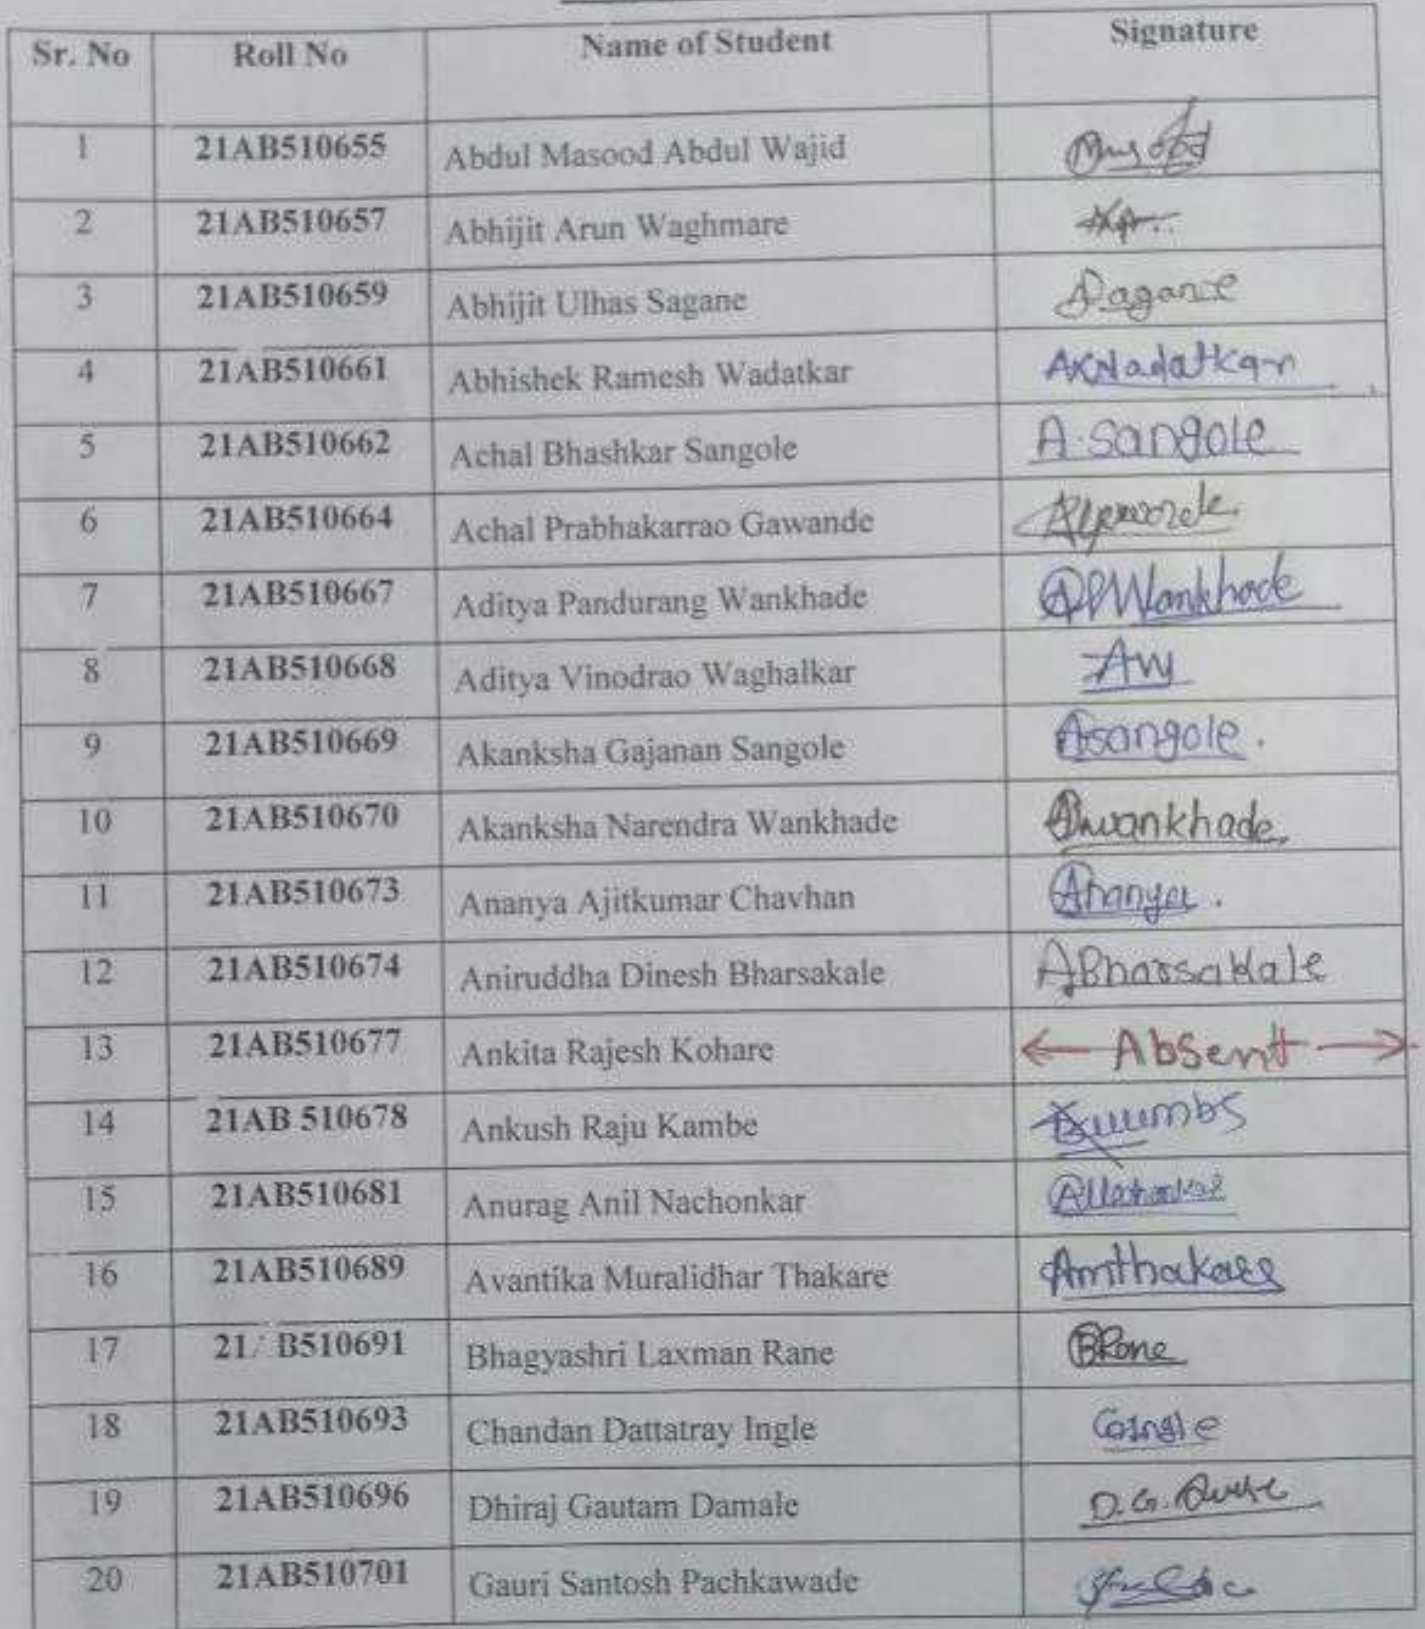 Sr. No Roll No Name of Student Signature
1 21AB510655 Abdul Masood Abdul Wajid
2 21AB510657 Abhijit Arun Waghmare
3 21AB510659 Abhijit Ulhas Sagane Sagane
4 21AB510661 Abhishek Ramesh Wadatkar ARWadatkar
5 21AB510662 Achal Bhashkar Sangole A.Sangole
6 21AB510664 Achal Prabhakarrao Gawande
7 21AB510667 Aditya Pandurang Wankhade APWankhade
8 21AB510668 Aditya Vinodrao Waghalkar
9 21AB510669 Akanksha Gajanan Sangole Asangole.
10 21AB510670 Akanksha Narendra Wankhade Awankhade
11 21AB510673 Ananya Ajitkumar Chavhan Ananya.
12 21AB510674 Aniruddha Dinesh Bharsakale ABharsakale
13 21AB510677 Ankita Rajesh Kohare Absent
14 21AB 510678 Ankush Raju Kambe
15 21AB510681 Anurag Anil Nachonkar
16 21AB510689 Avantika Muralidhar Thakare Amthakare
17 21 B510691 Bhagyashri Laxman Rane BRane
18 21AB510693 Chandan Dattatray Ingle CDIngle
19 21AB510696 Dhiraj Gautam Damale D.G.
20 21AB510701 Gauri Santosh Pachkawade